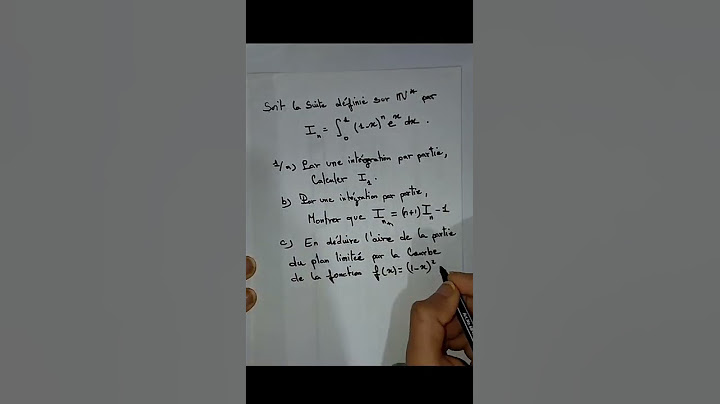 Soit la suite définie sur IN* par
I_n = ∫_0^1 (1-x)^n e^x dx .
1/a) Par une intégration par partie,
Calculer I_1 .
b) Par une intégration par partie,
Montrer que I_{n+1} = (n+1) I_n - 1
c) En déduire l'aire de la partie
du plan limiteé par la Courbe
de la fonction f(x) = (1-x)^2